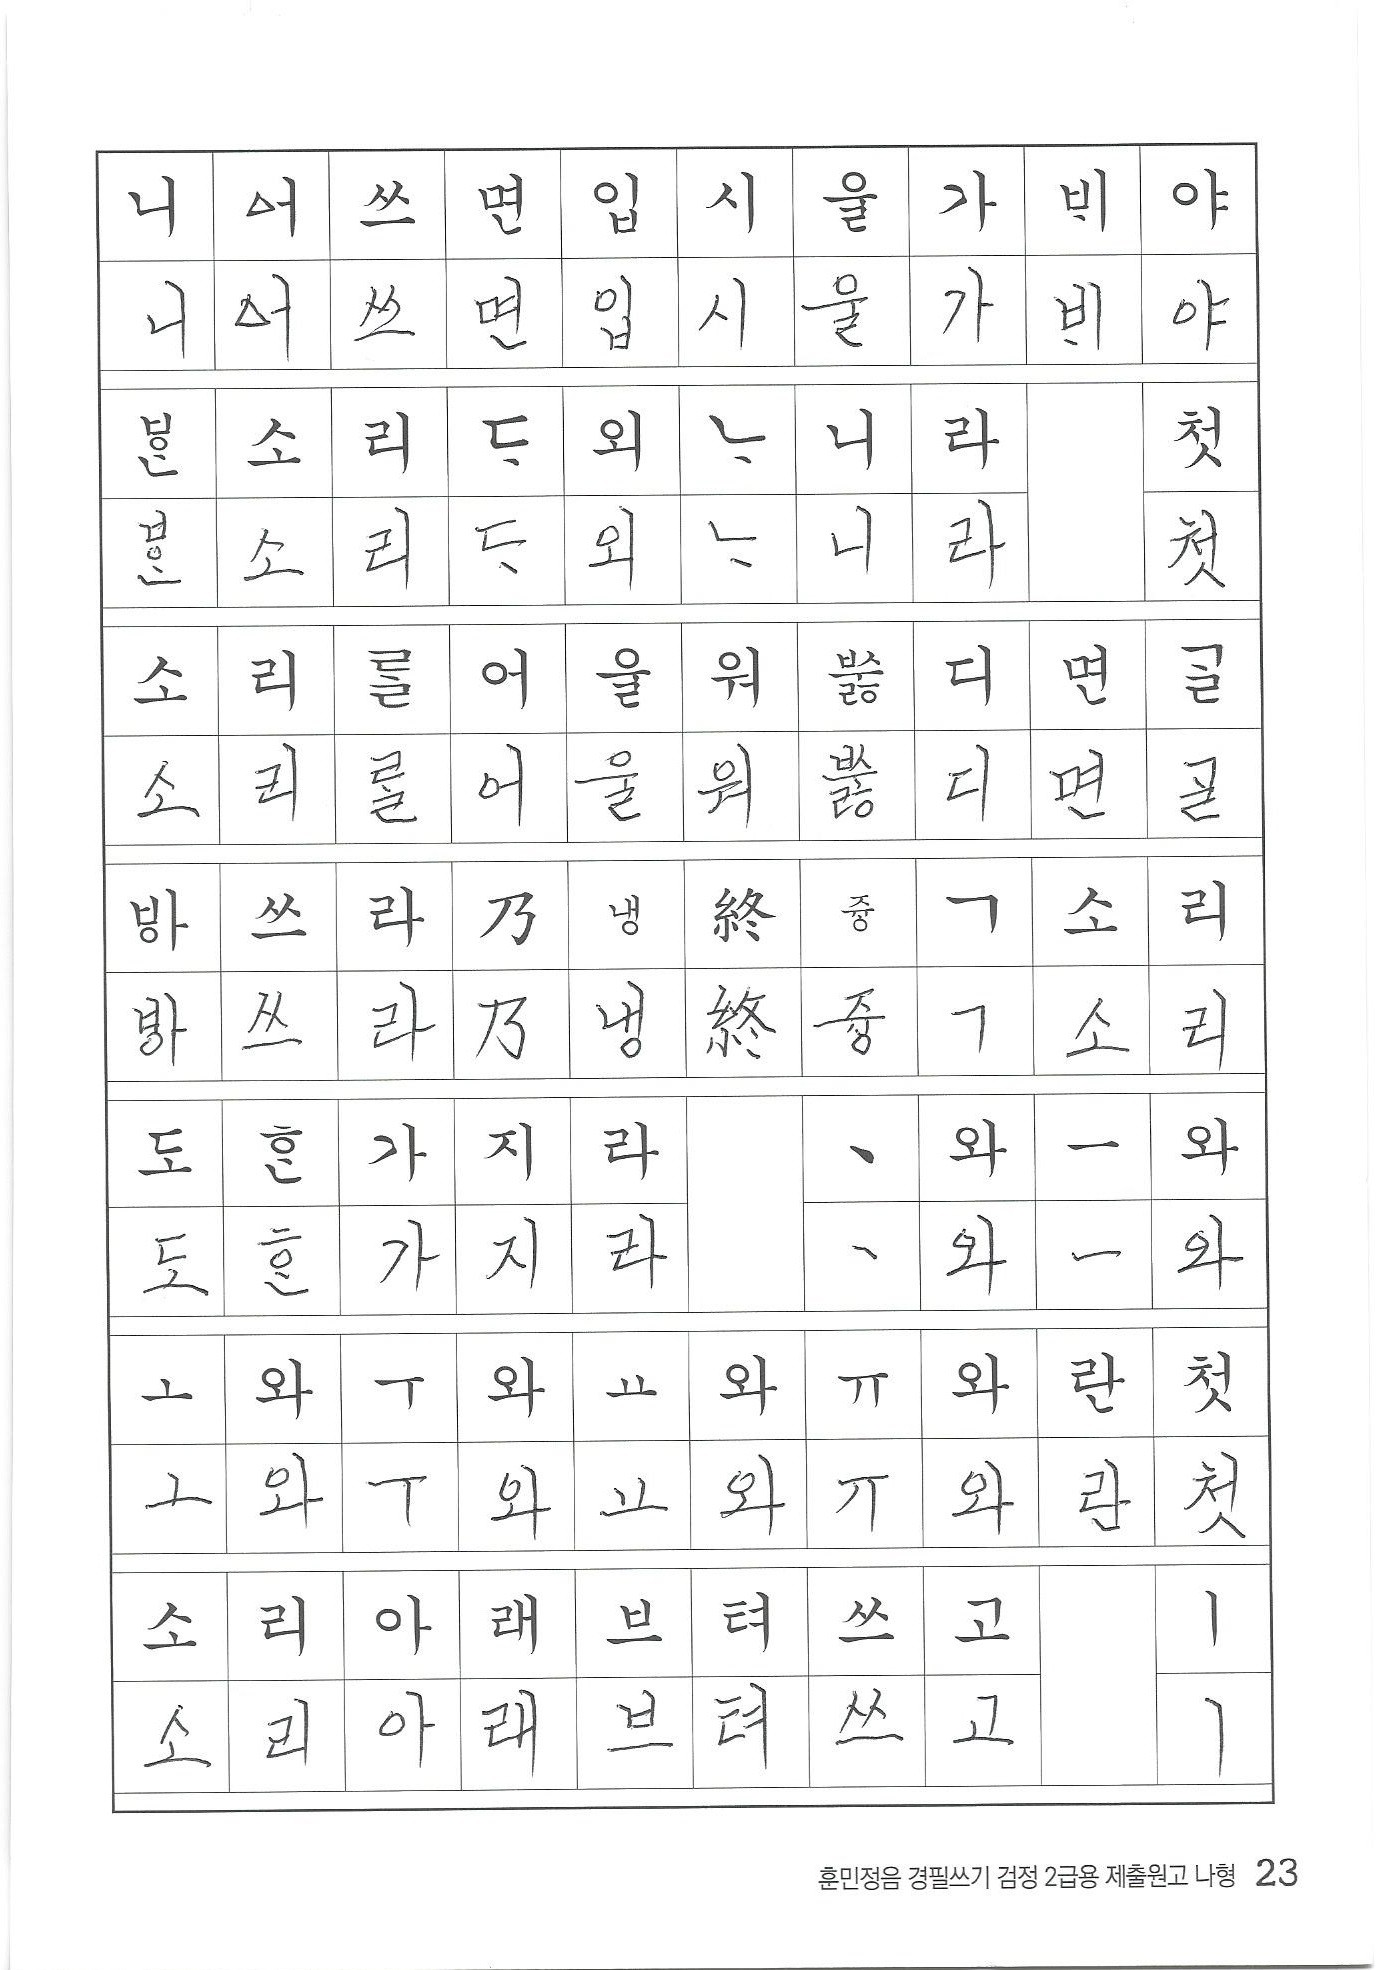 니 ᅀᅥ 쓰 면 입 시 울 가 ᄇᆡ 야
니 ᅀᅥ 쓰 면 입 시 울 가 ᄇᆡ 야
ᄫᆞᆫ 소 리 ᄃᆞ 외 ᄂᆞ 니 라 첫
ᄫᆞᆫ 소 리 ᄃᆞ 외 ᄂᆞ 니 라 첫
소 리 ᄅᆞᆯ 어 울 워 ᄡᅮᇙ 디 면 ᄀᆞᆯ
소 리 ᄅᆞᆯ 어 울 워 ᄡᅮᇙ 디 면 ᄀᆞᆯ
ᄫᅡ 쓰 라 乃 냉 終 즁 ㄱ 소 리
ᄫᅡ 쓰 라 乃 냉 終 즁 ㄱ 소 리
도 ᄒᆞᆫ 가 지 라 ㆍ 와 ㅡ 와
도 ᄒᆞᆫ 가 지 라 ㆍ 와 ㅡ 와
ㅗ 와 ㅜ 와 ㅛ 와 ㅠ 와 란 첫
ㅗ 와 ㅜ 와 ㅛ 와 ㅠ 와 란 첫
소 리 아 래 브 텨 쓰 고 ㅣ
소 리 아 래 브 텨 쓰 고 ㅣ
훈민정음 경필쓰기 검정 2급용 제출원고 나형 23